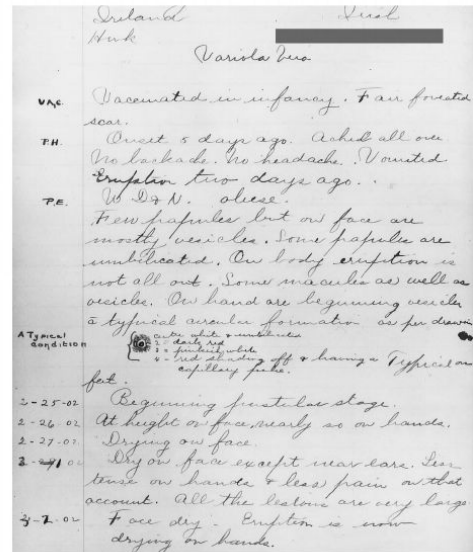 Ireland Irish
Hunk
Variola Vera
Vac. Vaccinated in infancy. Fair foveated
scar.
P.H. Onset 5 days ago. Ached all over
No backache. No headache. Vomited
Eruption two days ago.
P.E. W D & N. obese.
Few papules but on face are
mostly vesicles. Some papules are
umbilicated. On body eruption is
not all out. Some macules as well as
vesicles. On hand are beginning vesicles
c̄ typical circular formation as per drawing
A Typical
Condition
white & umbilicated
2 = dark red
3 = pinkish white
4 - red shading off & having a Typical on
capillary pulse.
feet.
2-25-02 Beginning pustular stage.
2-26-02 At height on face, nearly so on hands.
2-27-02 Drying on face.
Dry on face except near ears. Less
tense on hands & less pain on that
account. All the lesions are very large
3-2-02 Face dry. Eruption is now
drying on hands.